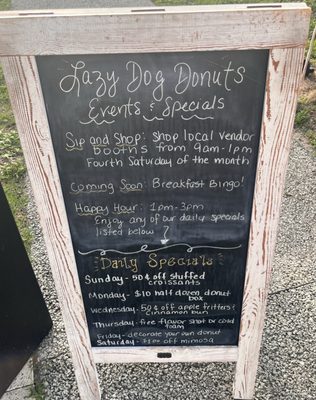 Lazy Dog Donuts
Events & Specials
Sip and Shop: Shop local vendor
booths from 9am-1pm
Fourth Saturday of the month
Coming Soon: Breakfast Bingo!
Happy Hour: 1pm-3pm
Enjoy any of our daily specials
listed below
Daily Specials
Sunday - 50¢ off stuffed
croissants
Monday - $10 half dozen donut
box
Wednesday - 50¢ off apple fritters &
cinnamon bun
Thursday - free flavor shot or cold
foam
Friday - decorate your own donut
Saturday - $1 off mimosa